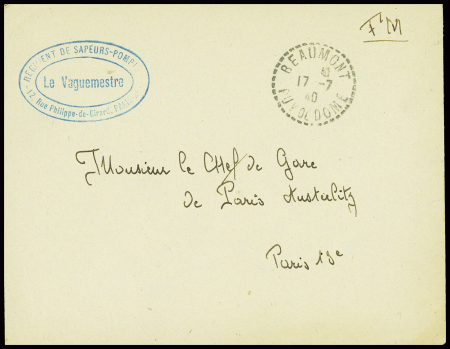 FM
RÉGIMENT DE SAPEURS-POMPI
Le Vaguemestre
12, Rue Philippe-de-Girard, PARIS
BEAUMONT
17 -7
40
PUY DE DOME
Monsieur le Chef de Gare
de Paris Austerlitz
Paris 13e